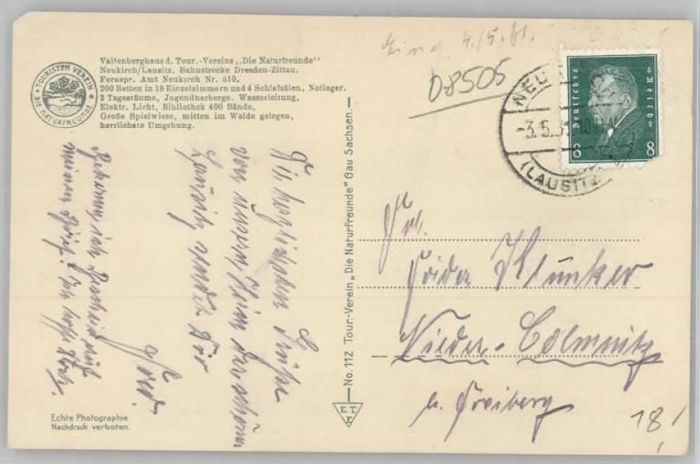 Valtenberghaus d. Tour.-Vereins „Die Naturfreunde"
Neukirch/Lausitz. Bahnstrecke Dresden-Zittau.
Fernspr. Amt Neukirch Nr. 510.
200 Betten in 18 Einzelzimmern und 4 Schlafsälen, Notlager.
3 Tagesräume, Jugendherberge. Wasserleitung,
Elektr. Licht, Bibliothek 400 Bände.
Große Spielwiese, mitten im Walde gelegen,
herrlichste Umgebung.
TOURISTEN VEREIN
DIE NATURFREUNDE
Die herzlichsten Grüße
von unserm Heim der schönen
Lausitz sendet Dir
Echte Photographie
Nachdruck verboten.
No. 112 Tour.-Verein „Die Naturfreunde" Gau Sachsen
4./5. 31.
08505
Deutsches Reich
8 8
3.5.31
(LAUSITZ)
Frl.
Frieda Klunker
Nieder-Colmnitz
b. Freiberg
18,